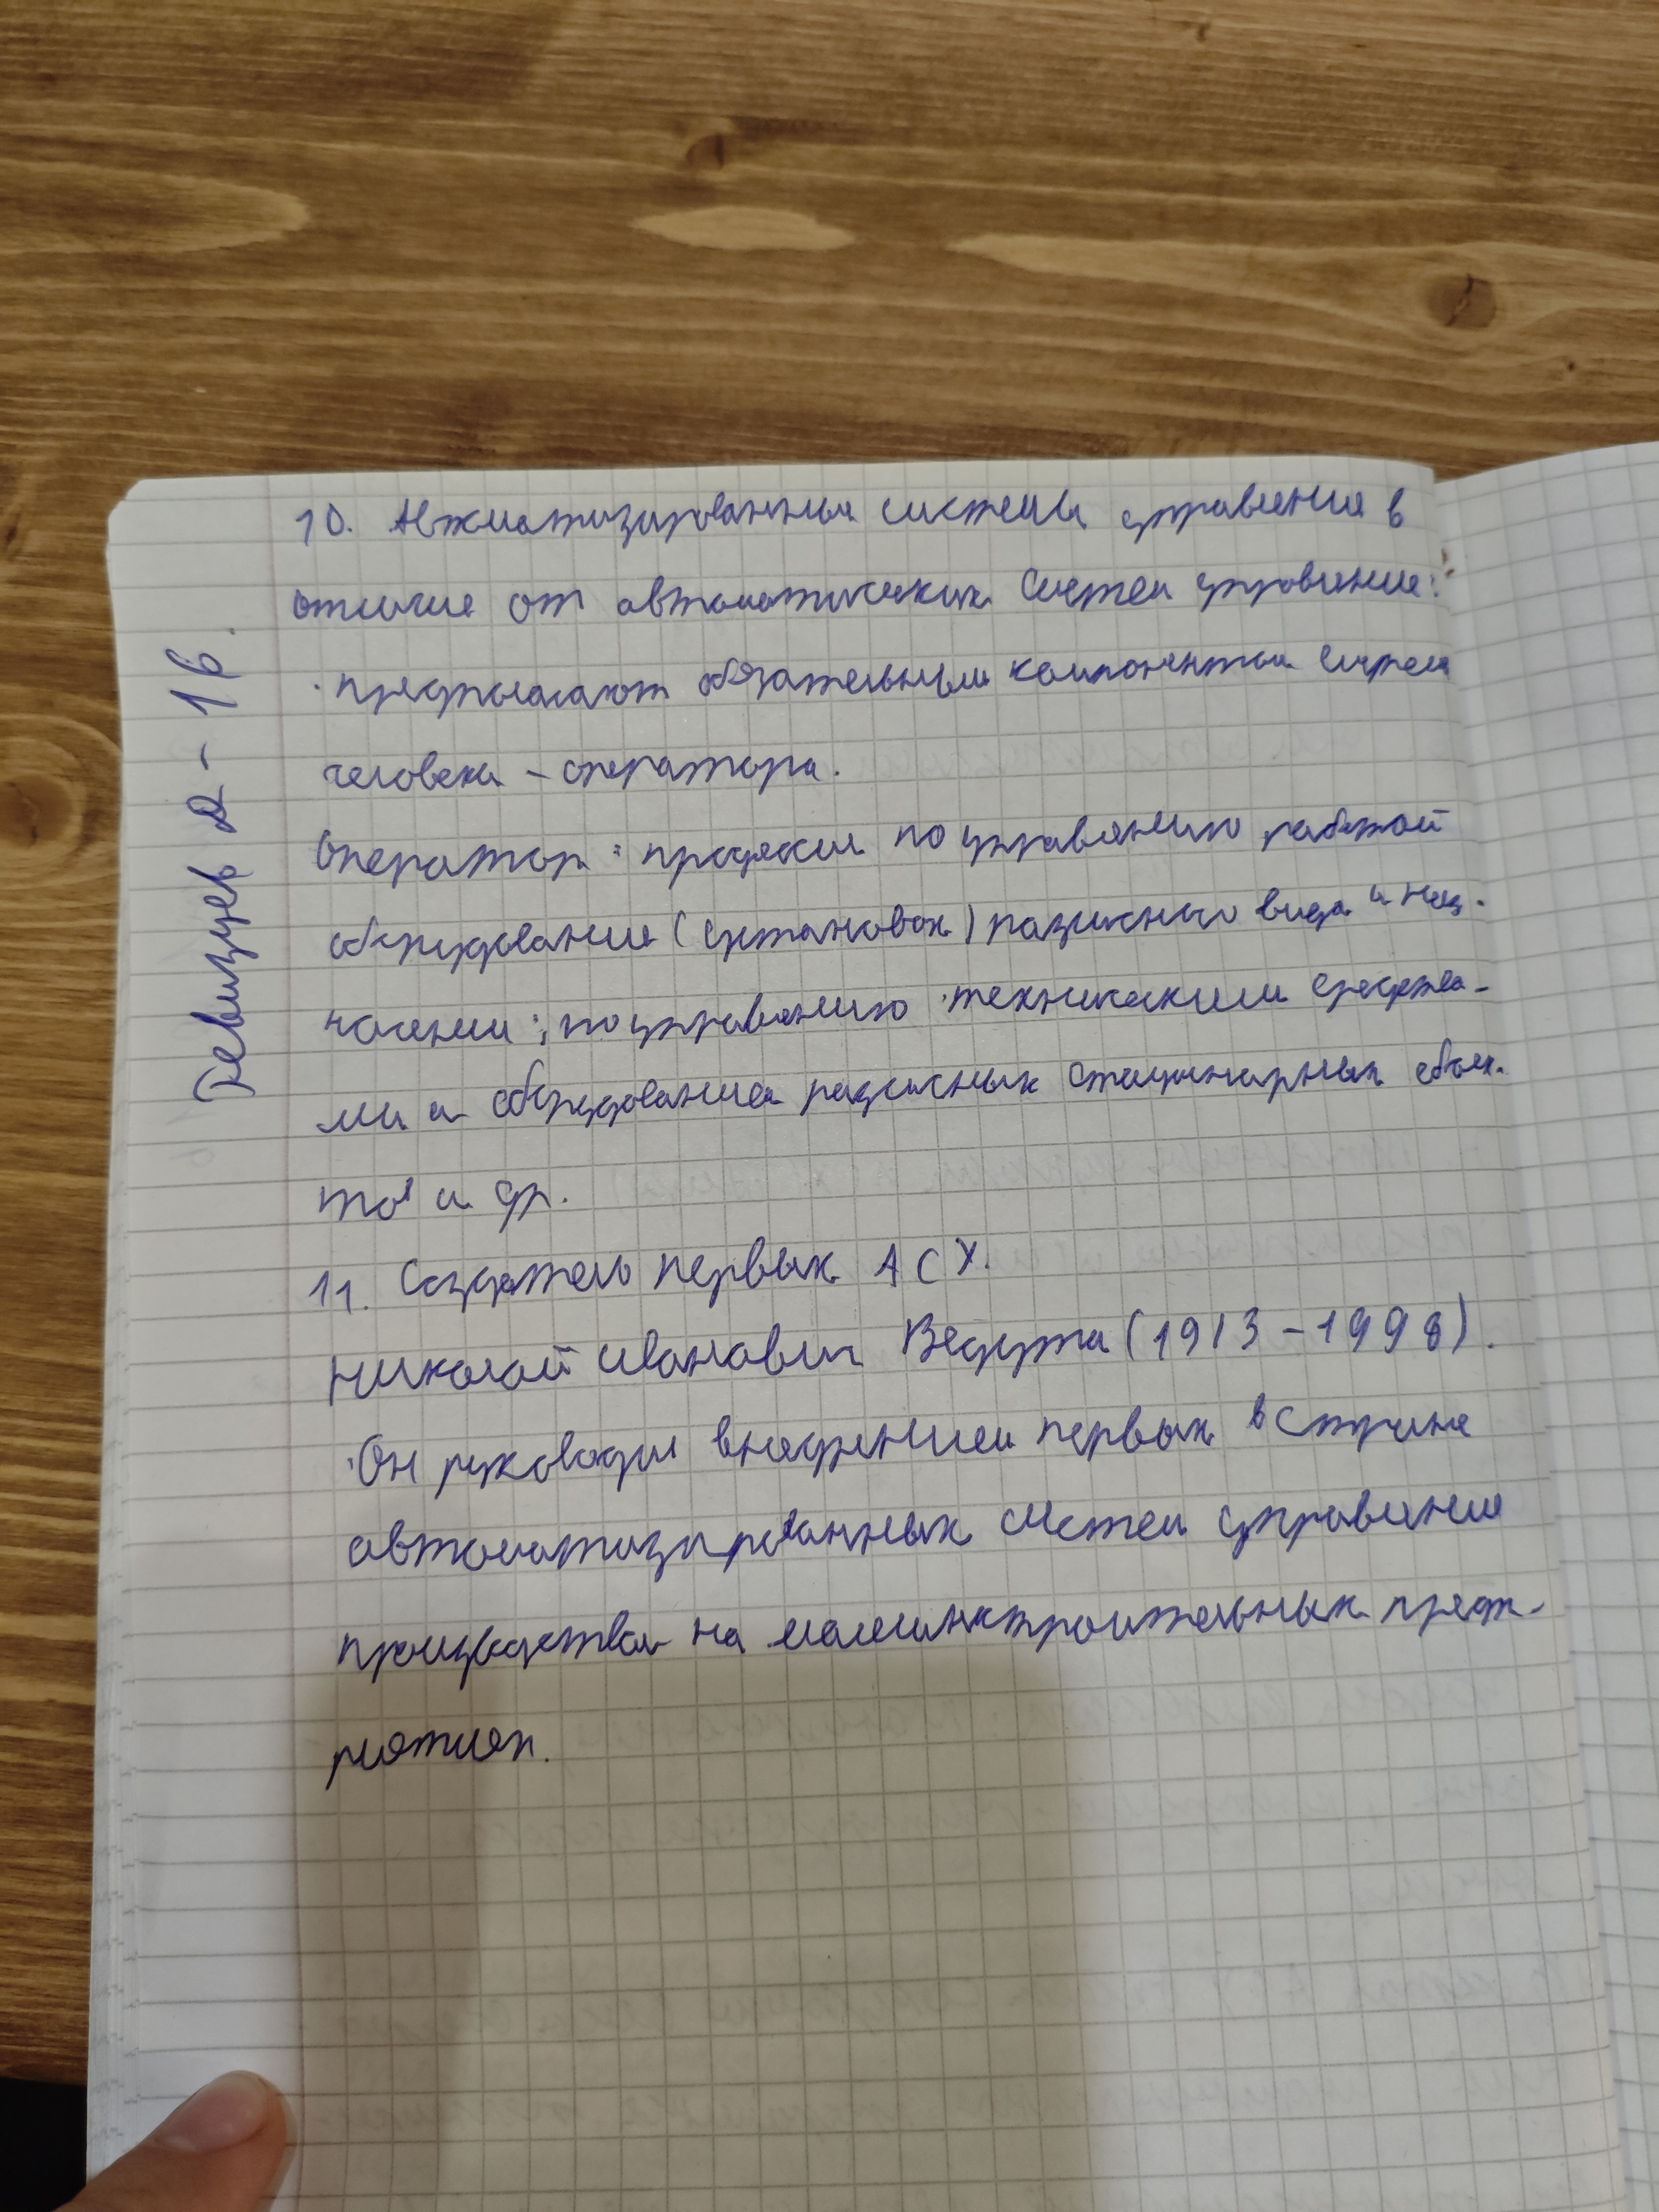 Ревизцев 2-1б.
10. Автоматизированные системы управления в
отличие от автоматических систем управления:
предполагают обязательным компонентом систем
человека - оператора.
Оператор: профессия по управлению работой
оборудования (установок) различного вида и наз-
начения; по управлению техническими средства-
ми и оборудования различных стационарных объек-
тов и др.
11. Создатель первых АСУ.
Николай Иванович Ведута (1913-1998).
Он руководил внедрением первых в стране
автоматизированных систем управления
производством на машиностроительных предп-
риятиях.